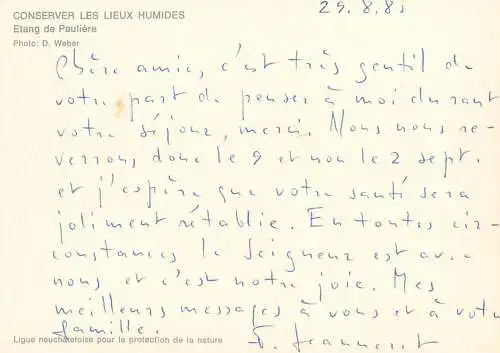 CONSERVER LES LIEUX HUMIDES
Etang de Paulière
Photo: D. Weber
Chère amie, c'est très gentil de
votre part de penser à moi durant
votre séjour, merci. Nous nous re-
verrons donc le 9 et non le 2 sept.
et j'espère que votre santé sera
joliment rétablie. En toutes cir-
constances le Seigneur est avec
nous et c'est notre joie. Mes
meilleurs messages à vous et à votre
famille.
Ligue neuchâteloise pour la protection de la nature
Jeanneret